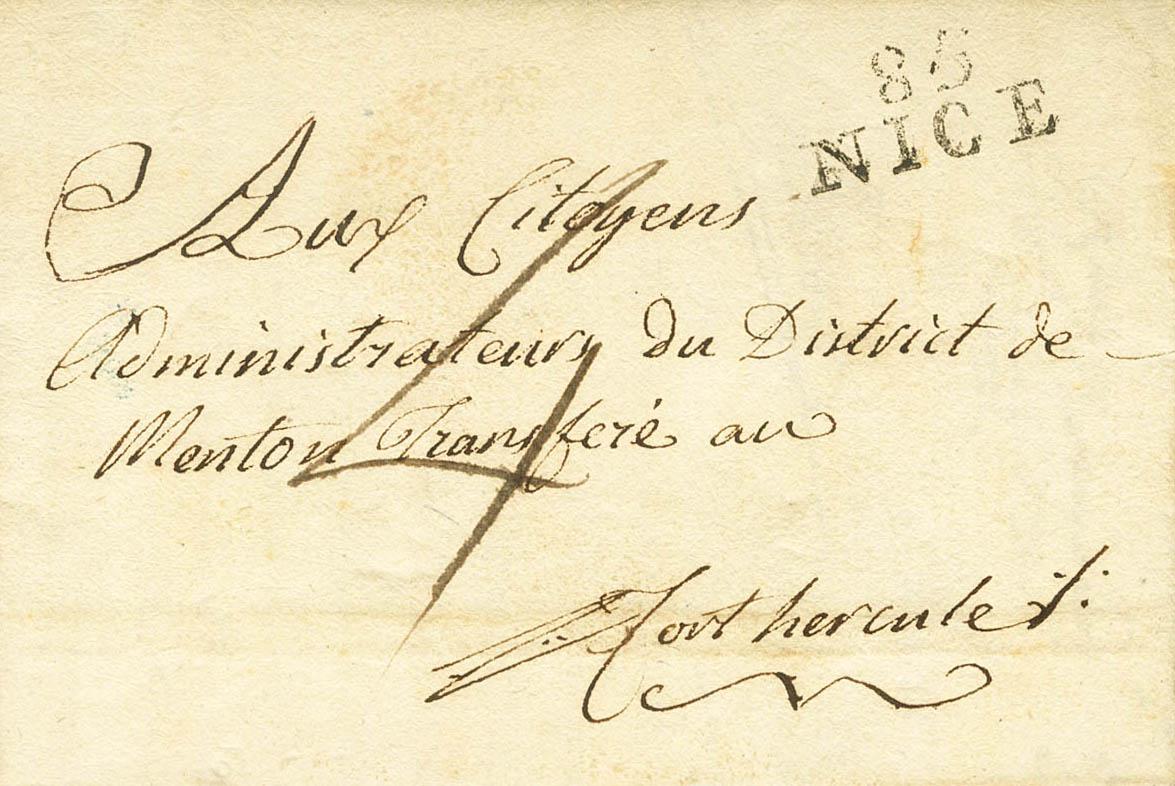 85
NICE
Aux Citoyens
Administrateurs du District de
Menton Transferé au
fort hercule
4